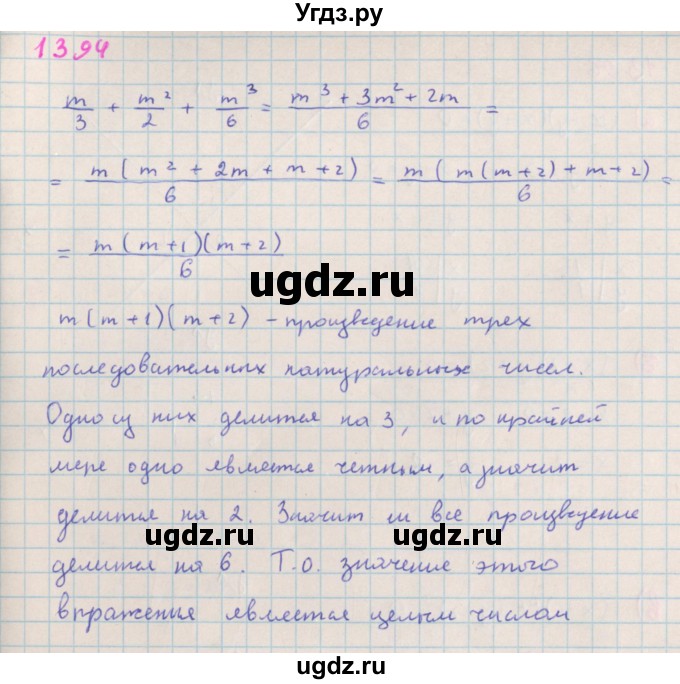 Угдз.ру
1394
m/3 + m²/2 + m³/6 = (m³ + 3m² + 2m)/6 =
= m(m² + 2m + m + 2)/6 = m(m(m+2) + m+2)/6 =
= m(m+1)(m+2)/6
ugdz.ru
m(m+1)(m+2) - произведение трех
последовательных натуральных чисел.
Одно из них делится на 3, и по крайней
ugdz.ru
мере одно является четным, а значит
делится на 2. Значит и все произведение
ugdz.ru
делится на 6. Т.о. значение этого
выражения является целым числом
ugdz.ru